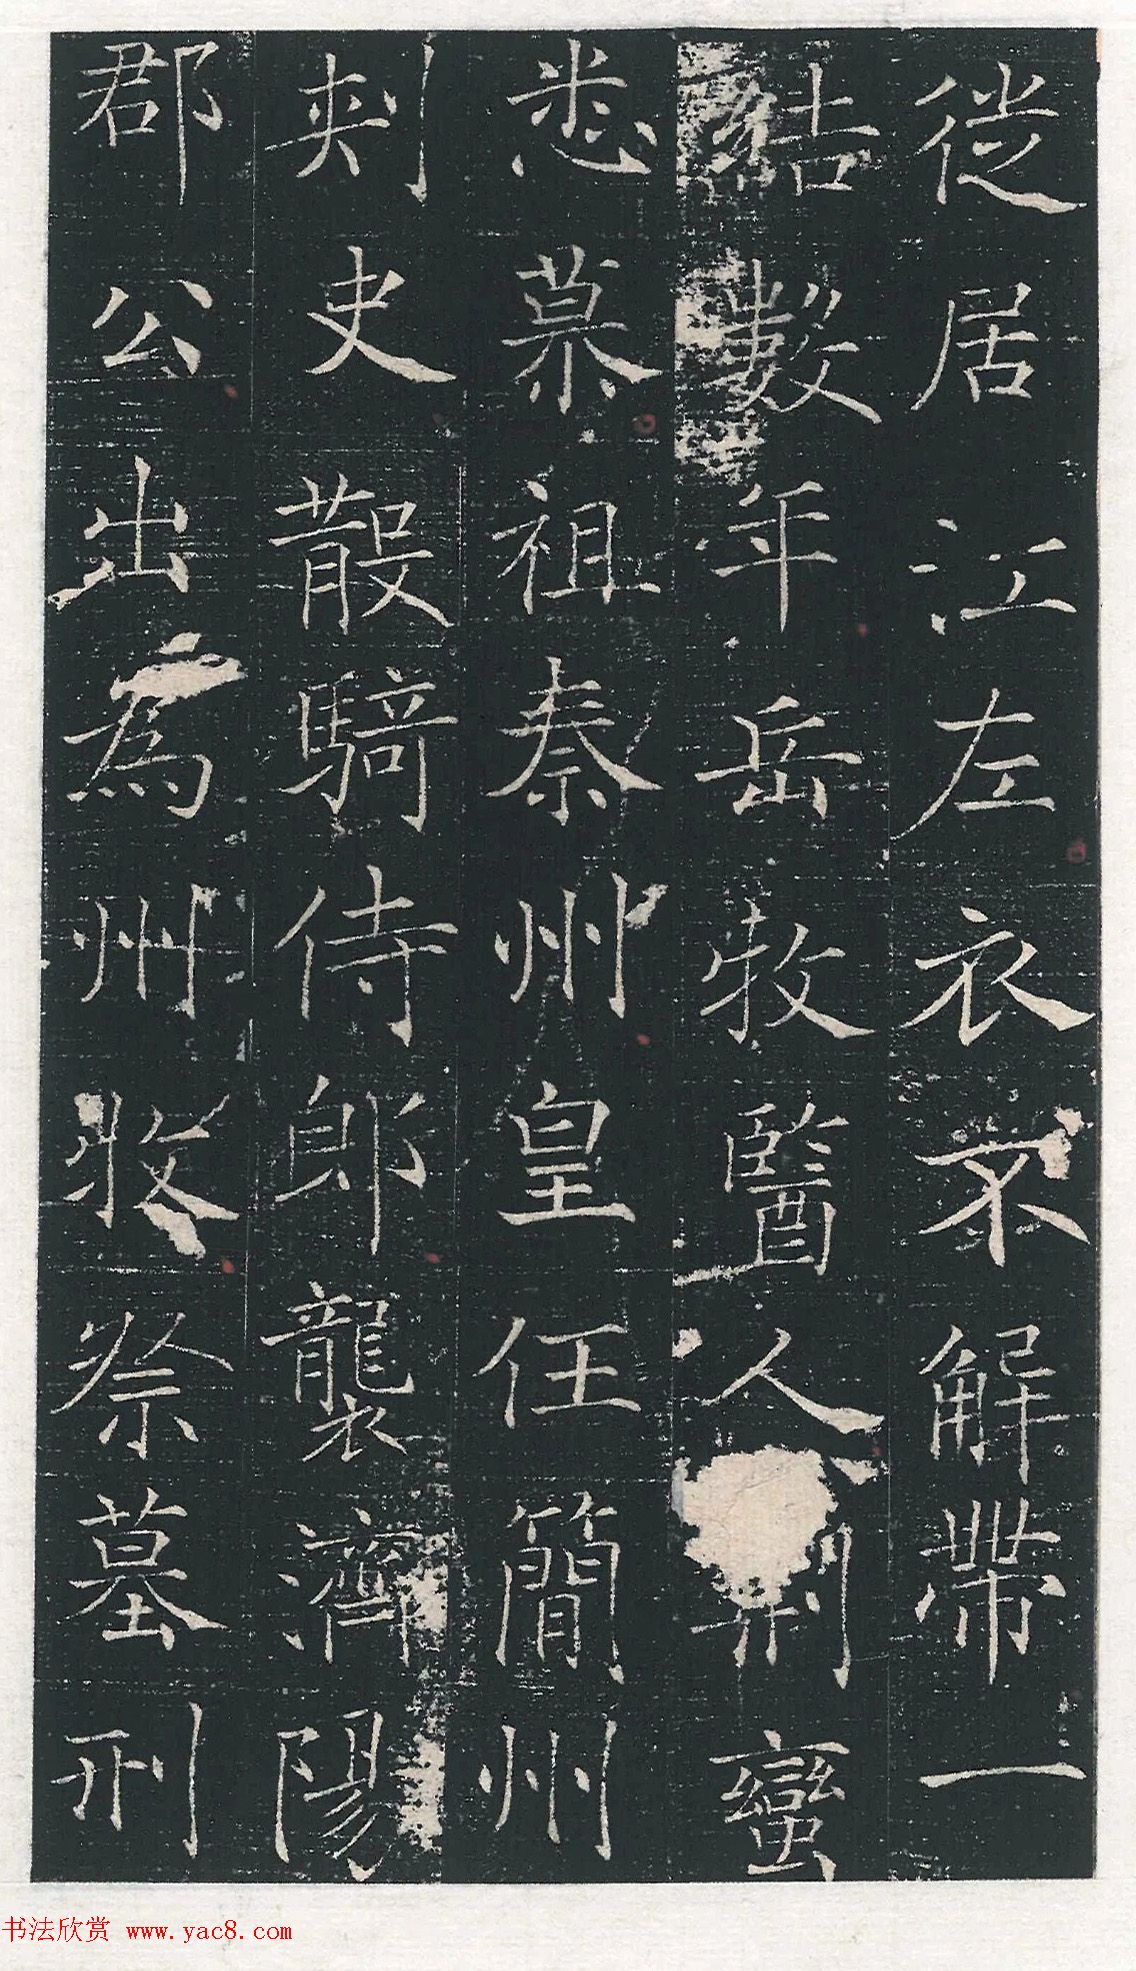 徙居江左衣不解帶一
結數年岳牧醫人荆蠻
悉慕祖秦州皇任簡州
刺史散騎侍郎襲濟陽
郡公出為州牧祭墓刑
书法欣赏 www.yac8.com